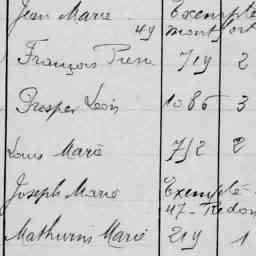 Jean Marie Exempté
49 montfort
François Pierre 719 2
Prosper Louis 1086 3
Louis Marie 712 2
Joseph Marie Exempté
47 - Redon
Mathurin Marie 219 1